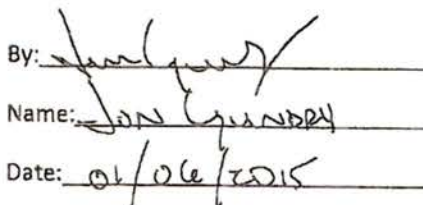 By:
Name: JON GUNDRY
Date: 01/06/2015